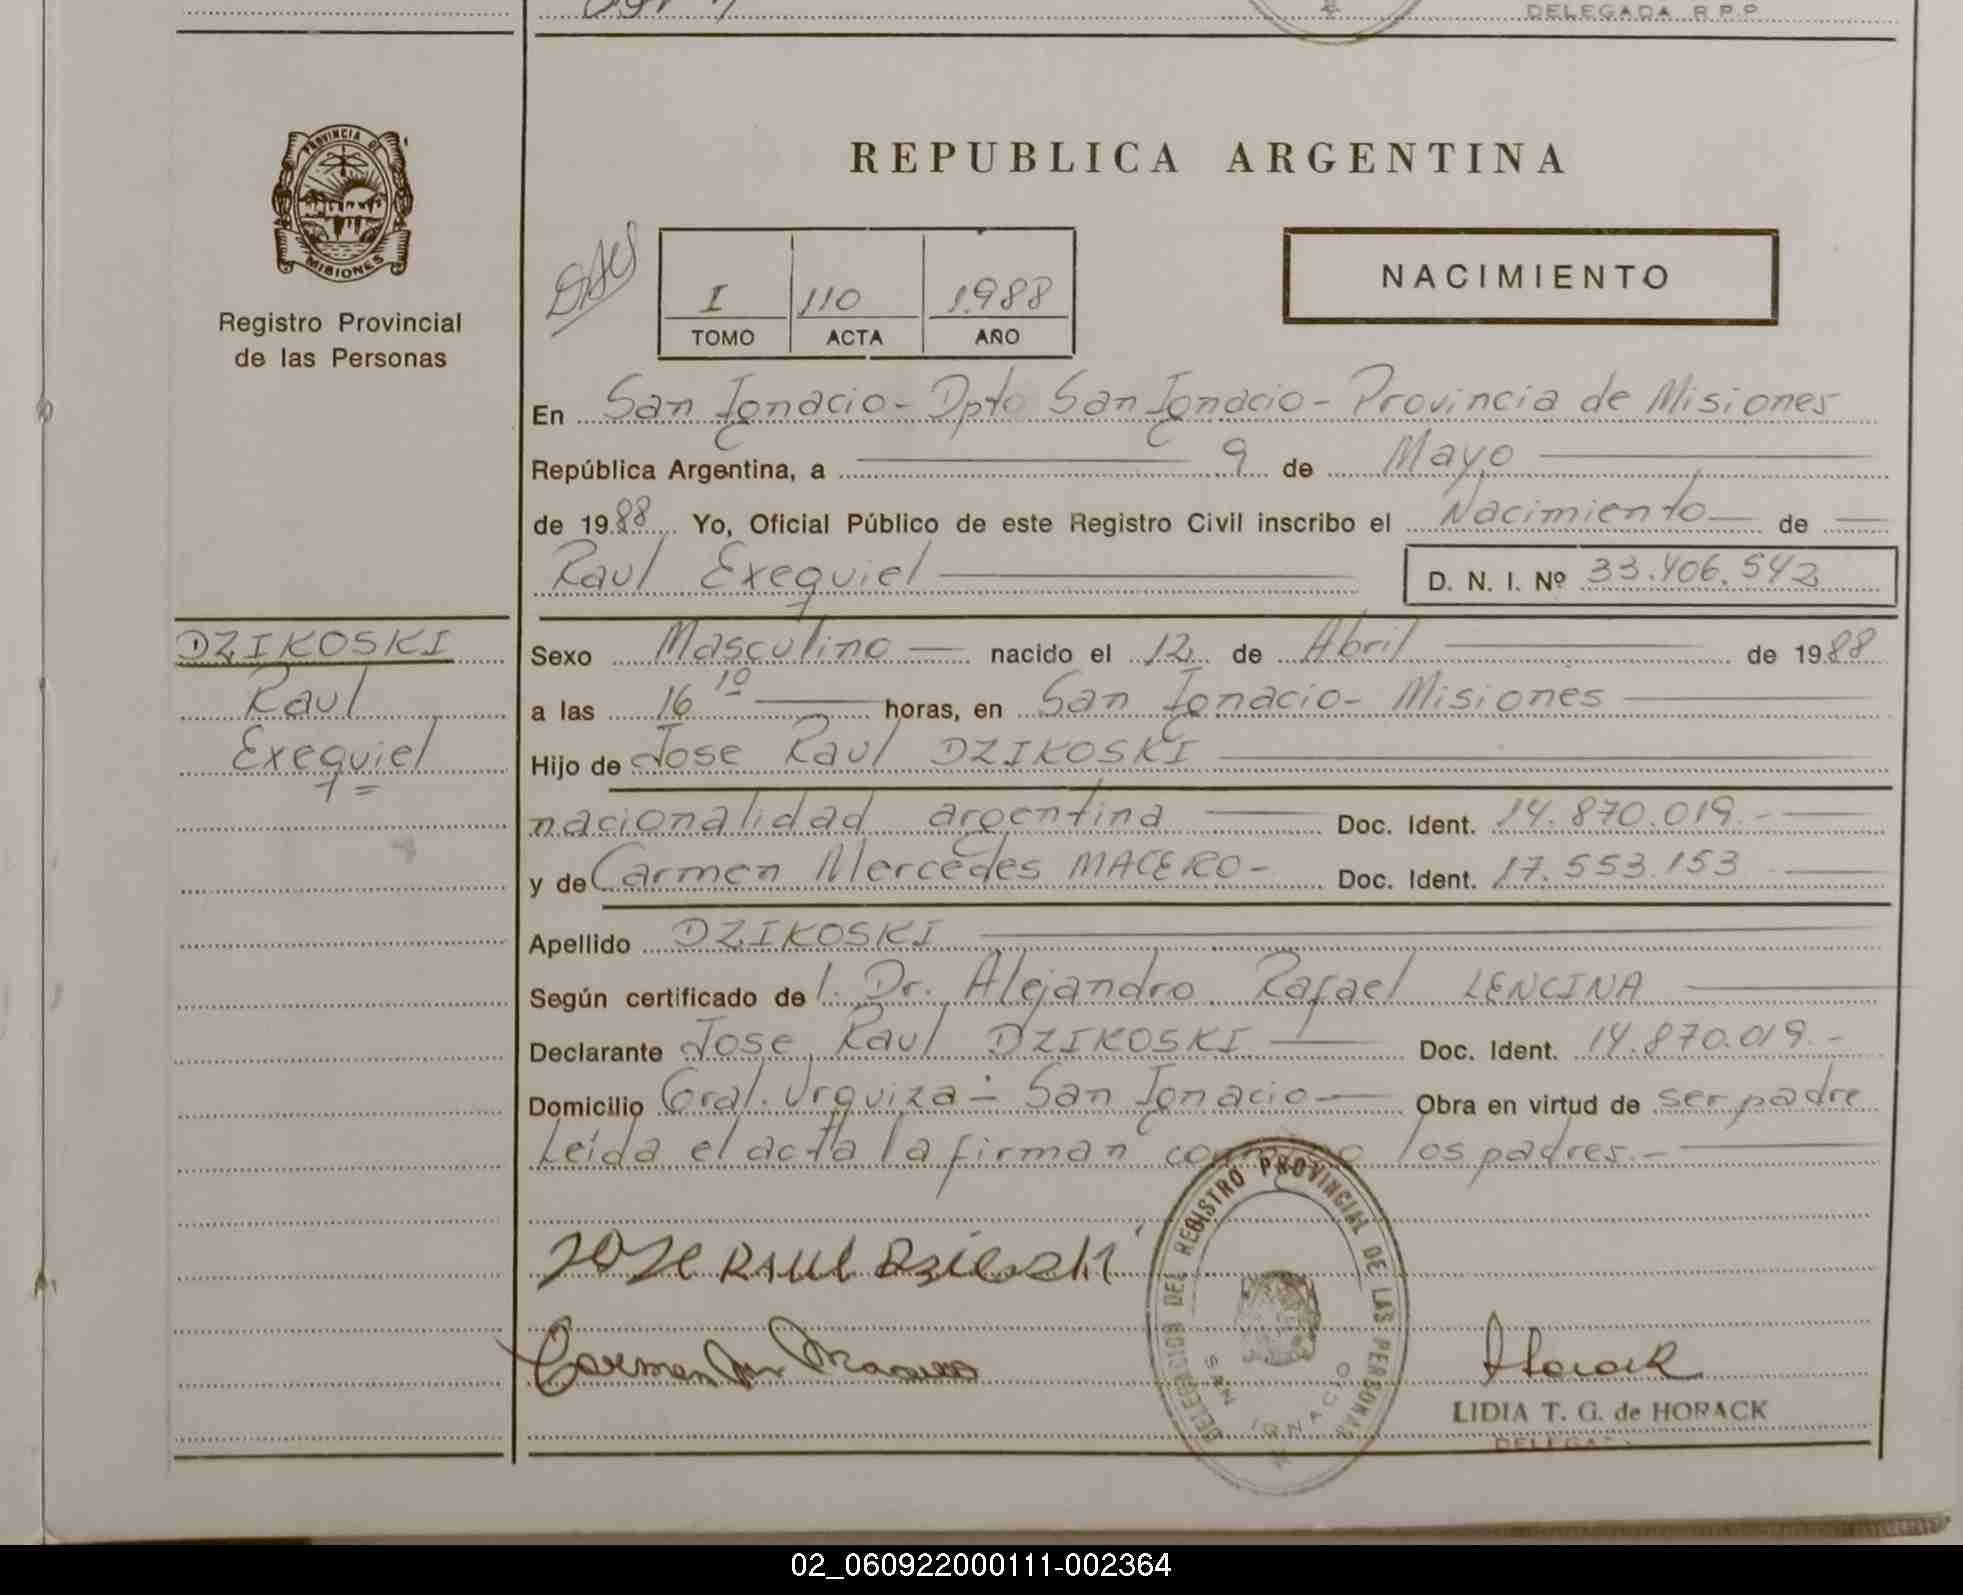 DELEGADA R.P.P
PROVINCIA DE
MISIONES
Registro Provincial
de las Personas
REPUBLICA ARGENTINA
I 110 1988
TOMO ACTA AÑO
NACIMIENTO
En San Ignacio - Dpto San Ignacio - Provincia de Misiones
República Argentina, a 9 de Mayo
de 1988 Yo, Oficial Público de este Registro Civil inscribo el Nacimiento de
Raul Exequiel D. N. I. Nº 33.406.542
DZIKOSKI
Raul
Exequiel
Sexo Masculino nacido el 12 de Abril de 1988
a las 16 10 horas, en San Ignacio - Misiones
Hijo de Jose Raul DZIKOSKI
nacionalidad argentina Doc. Ident. 14.870.019.-
y de Carmen Mercedes MACERO- Doc. Ident. 17.553.153
Apellido DZIKOSKI
Según certificado de l. Dr. Alejandro Rafael LENCINA
Declarante Jose Raul DZIKOSKI Doc. Ident. 14.870.019.-
Domicilio Gral. Urquiza - San Ignacio Obra en virtud de ser padre
Leída el acta la firman los padres.-
DELEGACION DEL REGISTRO PROVINCIAL DE LAS PERSONAS
SAN IGNACIO
JOSE RAUL
Carmen
Horack
LIDIA T. G. de HORACK
02_060922000111-002364